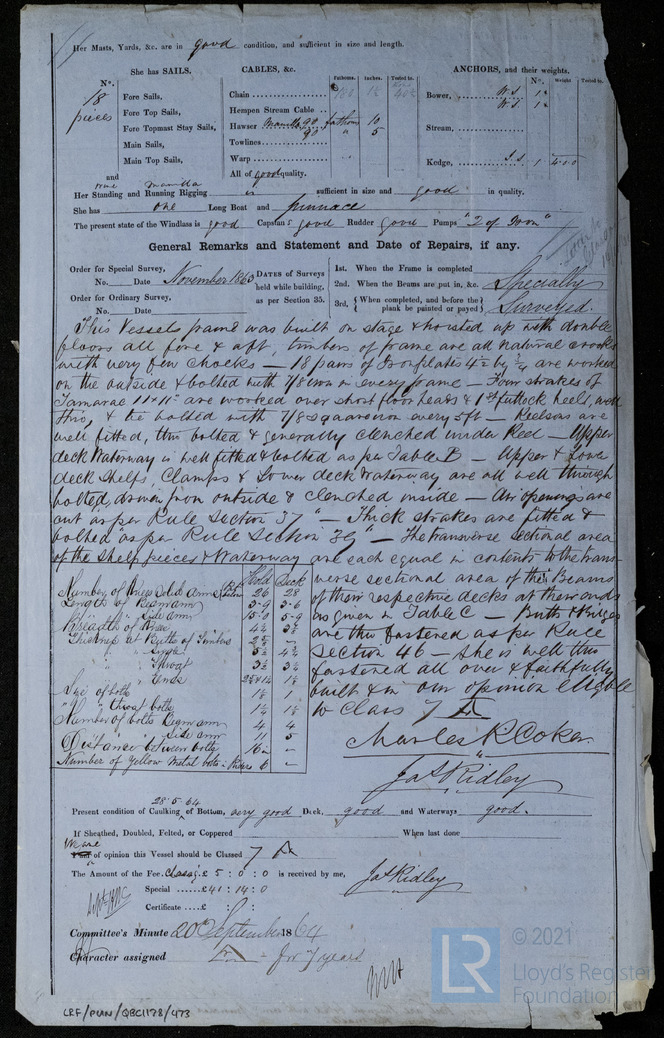 Her Masts, Yards, &c. are in good condition, and sufficient in size and length.
She has SAILS.
CABLES, &c.
Fathoms. Inches. Tested to
ANCHORS, and their weights.
No. Weight Tested to
No.
18 pieces
Fore Sails,
Fore Top Sails,
Fore Topmast Stay Sails,
Main Sails,
Main Top Sails,
and
Chain
Hempen Stream Cable
Hawser Manilla 90 fathoms 10
90 " 5
Towlines
Warp
All of good quality.
Bower, W.S 1
W.S 1
Stream,
Kedge, 1
Her Standing and Running Rigging wire Manilla is sufficient in size and good in quality.
She has one Long Boat and pinnace
The present state of the Windlass is good Capstan good Rudder Good Pumps "2 of Iron"
General Remarks and Statement and Date of Repairs, if any.
Order for Special Survey,
No. Date November 1863
Order for Ordinary Survey,
No. Date
DATES of Surveys
held while building,
as per Section 35.
1st. When the Frame is completed
2nd. When the Beams are put in, &c.
3rd, When completed, and before the plank be painted or payed
Specially
Surveyed.
This Vessels frame was built on stage & hoisted up with double
floors all fore & aft, timbers of frame are all natural crooks
with very few chocks — 18 pairs of Iron plates 4½ by ¾ are worked
on the outside & bolted with 7/8 iron in every frame — Four strakes of
Tamarac 11 x 11 are worked over short floor heads & 1st futtock heels, well
thro, & bolted with 7/8 square iron every 5ft — Keelsons are
well fitted, thro bolted & generally clenched under Keel — Upper
deck Waterway is well fitted & bolted as per Table B — Upper & Lower
deck Shelfs, Clamps & Lower deck Waterway are all well through
bolted, driven from outside & clenched inside — Air openings are
cut as per Rule Section 37 " — Thick strakes are fitted &
bolted as per Rule Section 39 " — The transverse sectional area
of the Shelf pieces & Waterway are each equal in contents to the trans-
verse sectional area of the Beams
of their respective decks at their ends
as given in Table C — Butts & Bilges
are thro fastened as per Rule
Section 46 — She is well thro
fastened all over & faithfully
built & in our opinion eligible
to Class 7 A
Hold Deck
Number of Knees 26 28
Length of Beam arm 3-9 3-6
Side arm 5-0 5-9
Breadth of Knee
Thickness at Butts of Timbers
Angle
Throat
Ends
Size of bolts 1⅛ 1
" throat bolts
Number of bolts Beam arm 4 4
" Side arm 11 5
Distance between bolts
Number of Yellow Metal bolts in Riders 6 —
Charles R Coker
Jas Ridley
28.5.64
Present condition of Caulking of Bottom, very good Deck, good and Waterways good.
If Sheathed, Doubled, Felted, or Coppered When last done
We are of opinion this Vessel should be Classed 7 A
The Amount of the Fee Classg. £ 5 : 0 : 0 is received by me,
Special £41 : 14 : 0
Certificate £ : :
Jas Ridley
Committee's Minute 20th September 1864
Character assigned A - for 7 years
LRF/PUN/QBC1178/473
LR
© 2021
Lloyd's Register
Foundation